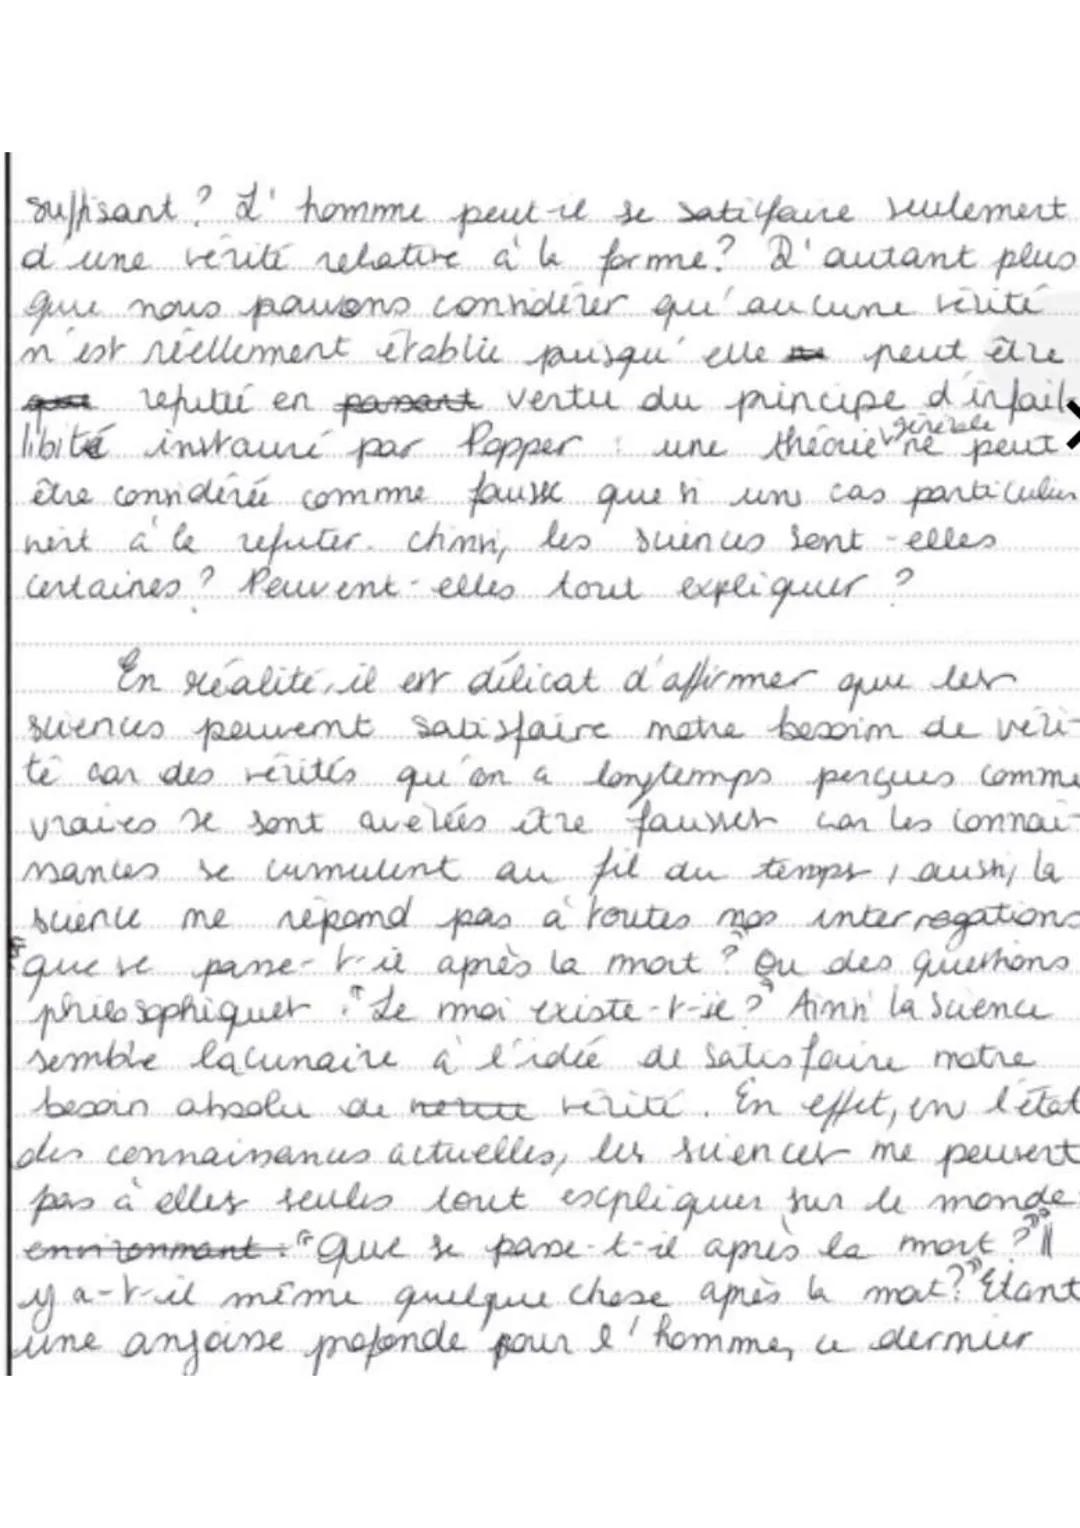 suffisant ? L' homme peut-il se satisfaire seulement
d'une vérité relative à la forme ? D'autant plus
que nous pouvons considérer qu'aucune vérité
n'est réellement établie puisqu' elle peut être
refutée en passant vertu du principe d'infail-
libité instauré par Popper : une théorie générale ne peut
être considérée comme fausse que si un cas particulier
vient à la refuter. Ainsi, les sciences sont-elles
certaines ? Peuvent-elles tout expliquer ?
En réalité, il est délicat d'affirmer que les
sciences peuvent satisfaire notre besoin de véri-
té car des vérités qu'on a longtemps perçues comme
vraies se sont avérées être fausses car les connai-
ssances se cumulent au fil du temps, aussi, la
science ne répond pas à toutes nos interrogations
"que se passe-t-il après la mort ?" Ou des questions
philosophiques : "Le moi existe-t-il ?" Ainsi la science
semble lacunaire à l'idée de satisfaire notre
besoin absolu de vérité. En effet, en l'état
des connaissances actuelles, les sciences ne peuvent
pas à elles seules tout expliquer sur le monde
environnant : "Que se passe-t-il après la mort ?" "Il
y a-t-il même quelque chose après la mort ?" Etant
une angoisse profonde pour l'homme, ce dernier